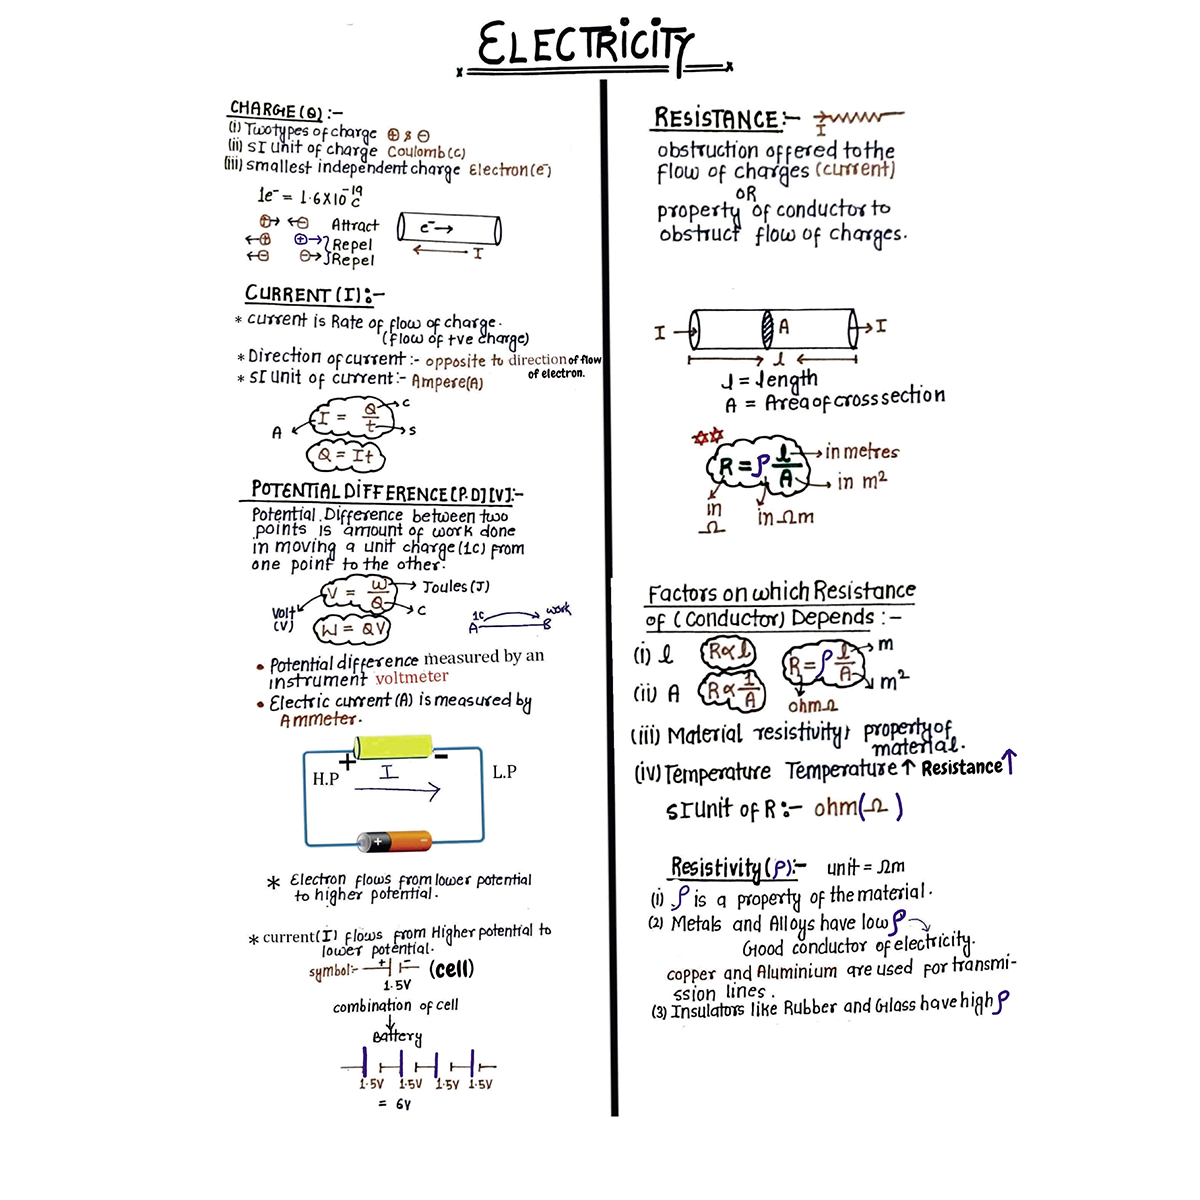 ELECTRICITY
CHARGE(Q):-
(i) Two types of charge ⊕ & ⊖
(ii) SI unit of charge Coulomb(c)
(iii) smallest independent charge Electron(e⁻)
1e⁻ = 1.6X10⁻¹⁹ c
⊕→ ←⊖ Attract
←⊕ ⊕→ Repel
←⊖ ⊖→ Repel
e⁻→
I
CURRENT(I):-
* current is Rate of flow of charge.
(flow of +ve charge)
* Direction of current:- opposite to direction of flow
of electron.
* SI unit of current:- Ampere(A)
I = Q/t
A
C
S
Q = It
POTENTIAL DIFFERENCE[P.D][V]:-
Potential Difference between two
points is amount of work done
in moving a unit charge(1c) from
one point to the other.
V = W/Q
Joules(J)
C
Volt
(V)
W = QV
1C
work
A
B
• Potential difference measured by an
instrument voltmeter
• Electric current(A) is measured by
Ammeter.
+ -
H.P
I
L.P
+
* Electron flows from lower potential
to higher potential.
* current(I) flows from Higher potential to
lower potential.
symbol:- + - (cell)
1.5V
combination of cell
↓
Battery
1.5V 1.5V 1.5V 1.5V
= 6V
RESISTANCE:-
I
obstruction offered to the
flow of charges (current)
OR
property of conductor to
obstruct flow of charges.
I
A
I
l
l = length
A = Area of cross section
R = ρ l/A
in metres
in m²
in
Ω
in Ωm
Factors on which Resistance
of (Conductor) Depends:-
(i) l R∝l
(ii) A R∝1/A
R=ρ l/A
m
m²
ohm Ω
(iii) Material resistivity, property of
material.
(iv) Temperature Temperature↑ Resistance↑
SI unit of R:- ohm(Ω)
Resistivity(ρ):- unit = Ωm
(i) ρ is a property of the material.
(2) Metals and Alloys have low ρ
Good conductor of electricity.
copper and Aluminium are used for transmi-
ssion lines.
(3) Insulators like Rubber and Glass have high ρ